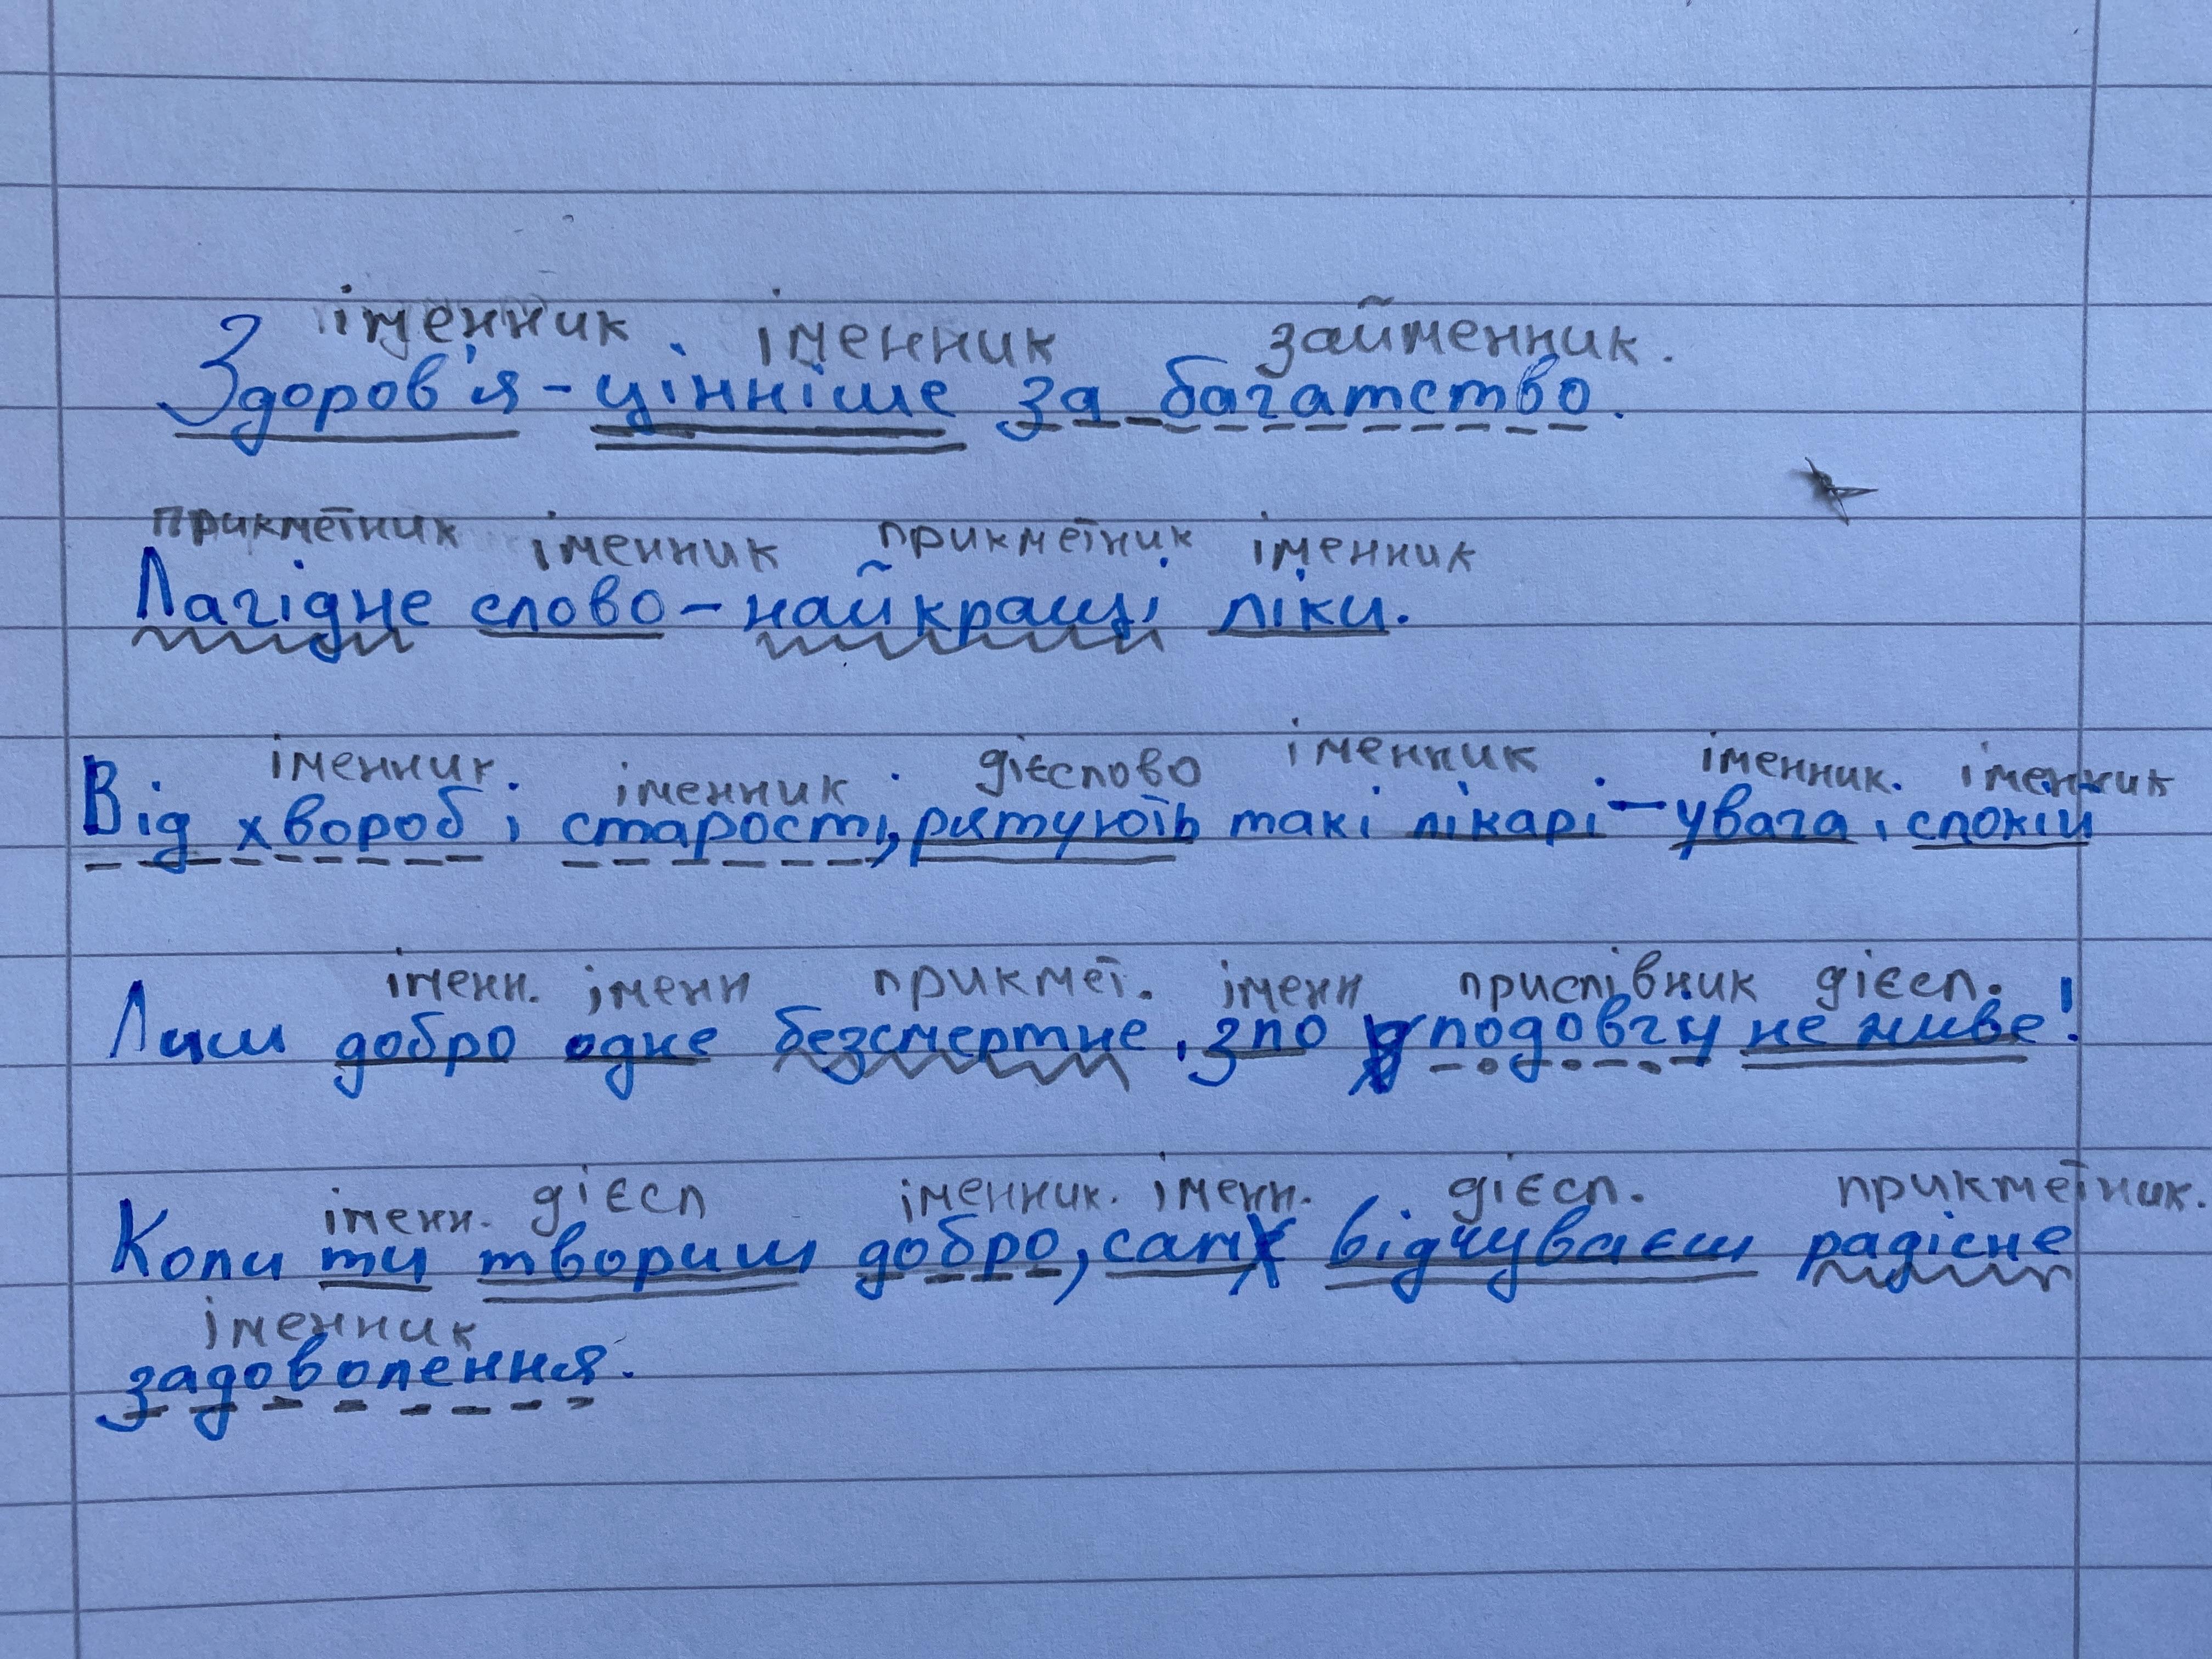 іменник іменник займенник.
Здоров'я - цінніше за багатство.
прикметник іменник прикметник іменник
Лагідне слово - найкращі ліки.
іменник. іменник дієслово іменник іменник. іменник
Від хвороб і старості, рятують такі лікарі - увага, спокій
іменн. іменн прикмет. іменн прислівник дієсл.
Лиш добро одне безсмертне, зло подовгу не живе!
іменн. дієсл іменник. іменн. дієсл. прикметник.
Коли ти твориш добро, сам відчуваєш радісне
іменник
задоволення.